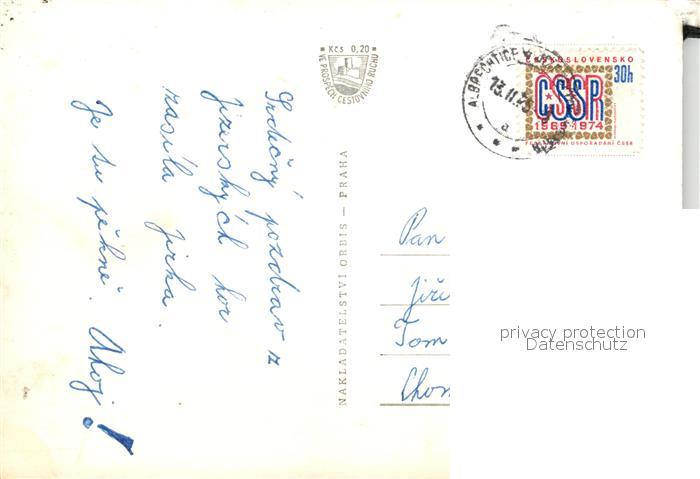 Kčs 0,20
VE PROSPĚCH CESTOVNÍHO RUCHU
Srdečný pozdrav z
Jizerských hor
zasílá Jirka.
Je tu pěkně. Ahoj!
NAKLADATELSTVÍ ORBIS — PRAHA
ALBRECHTICE
13.II.75
a
ČESKOSLOVENSKO
30h
ČSSR
1969 1974
USPOŘÁDÁNÍ ČSSR
Pan
Jiří
Tom
Chom
privacy protection
Datenschutz